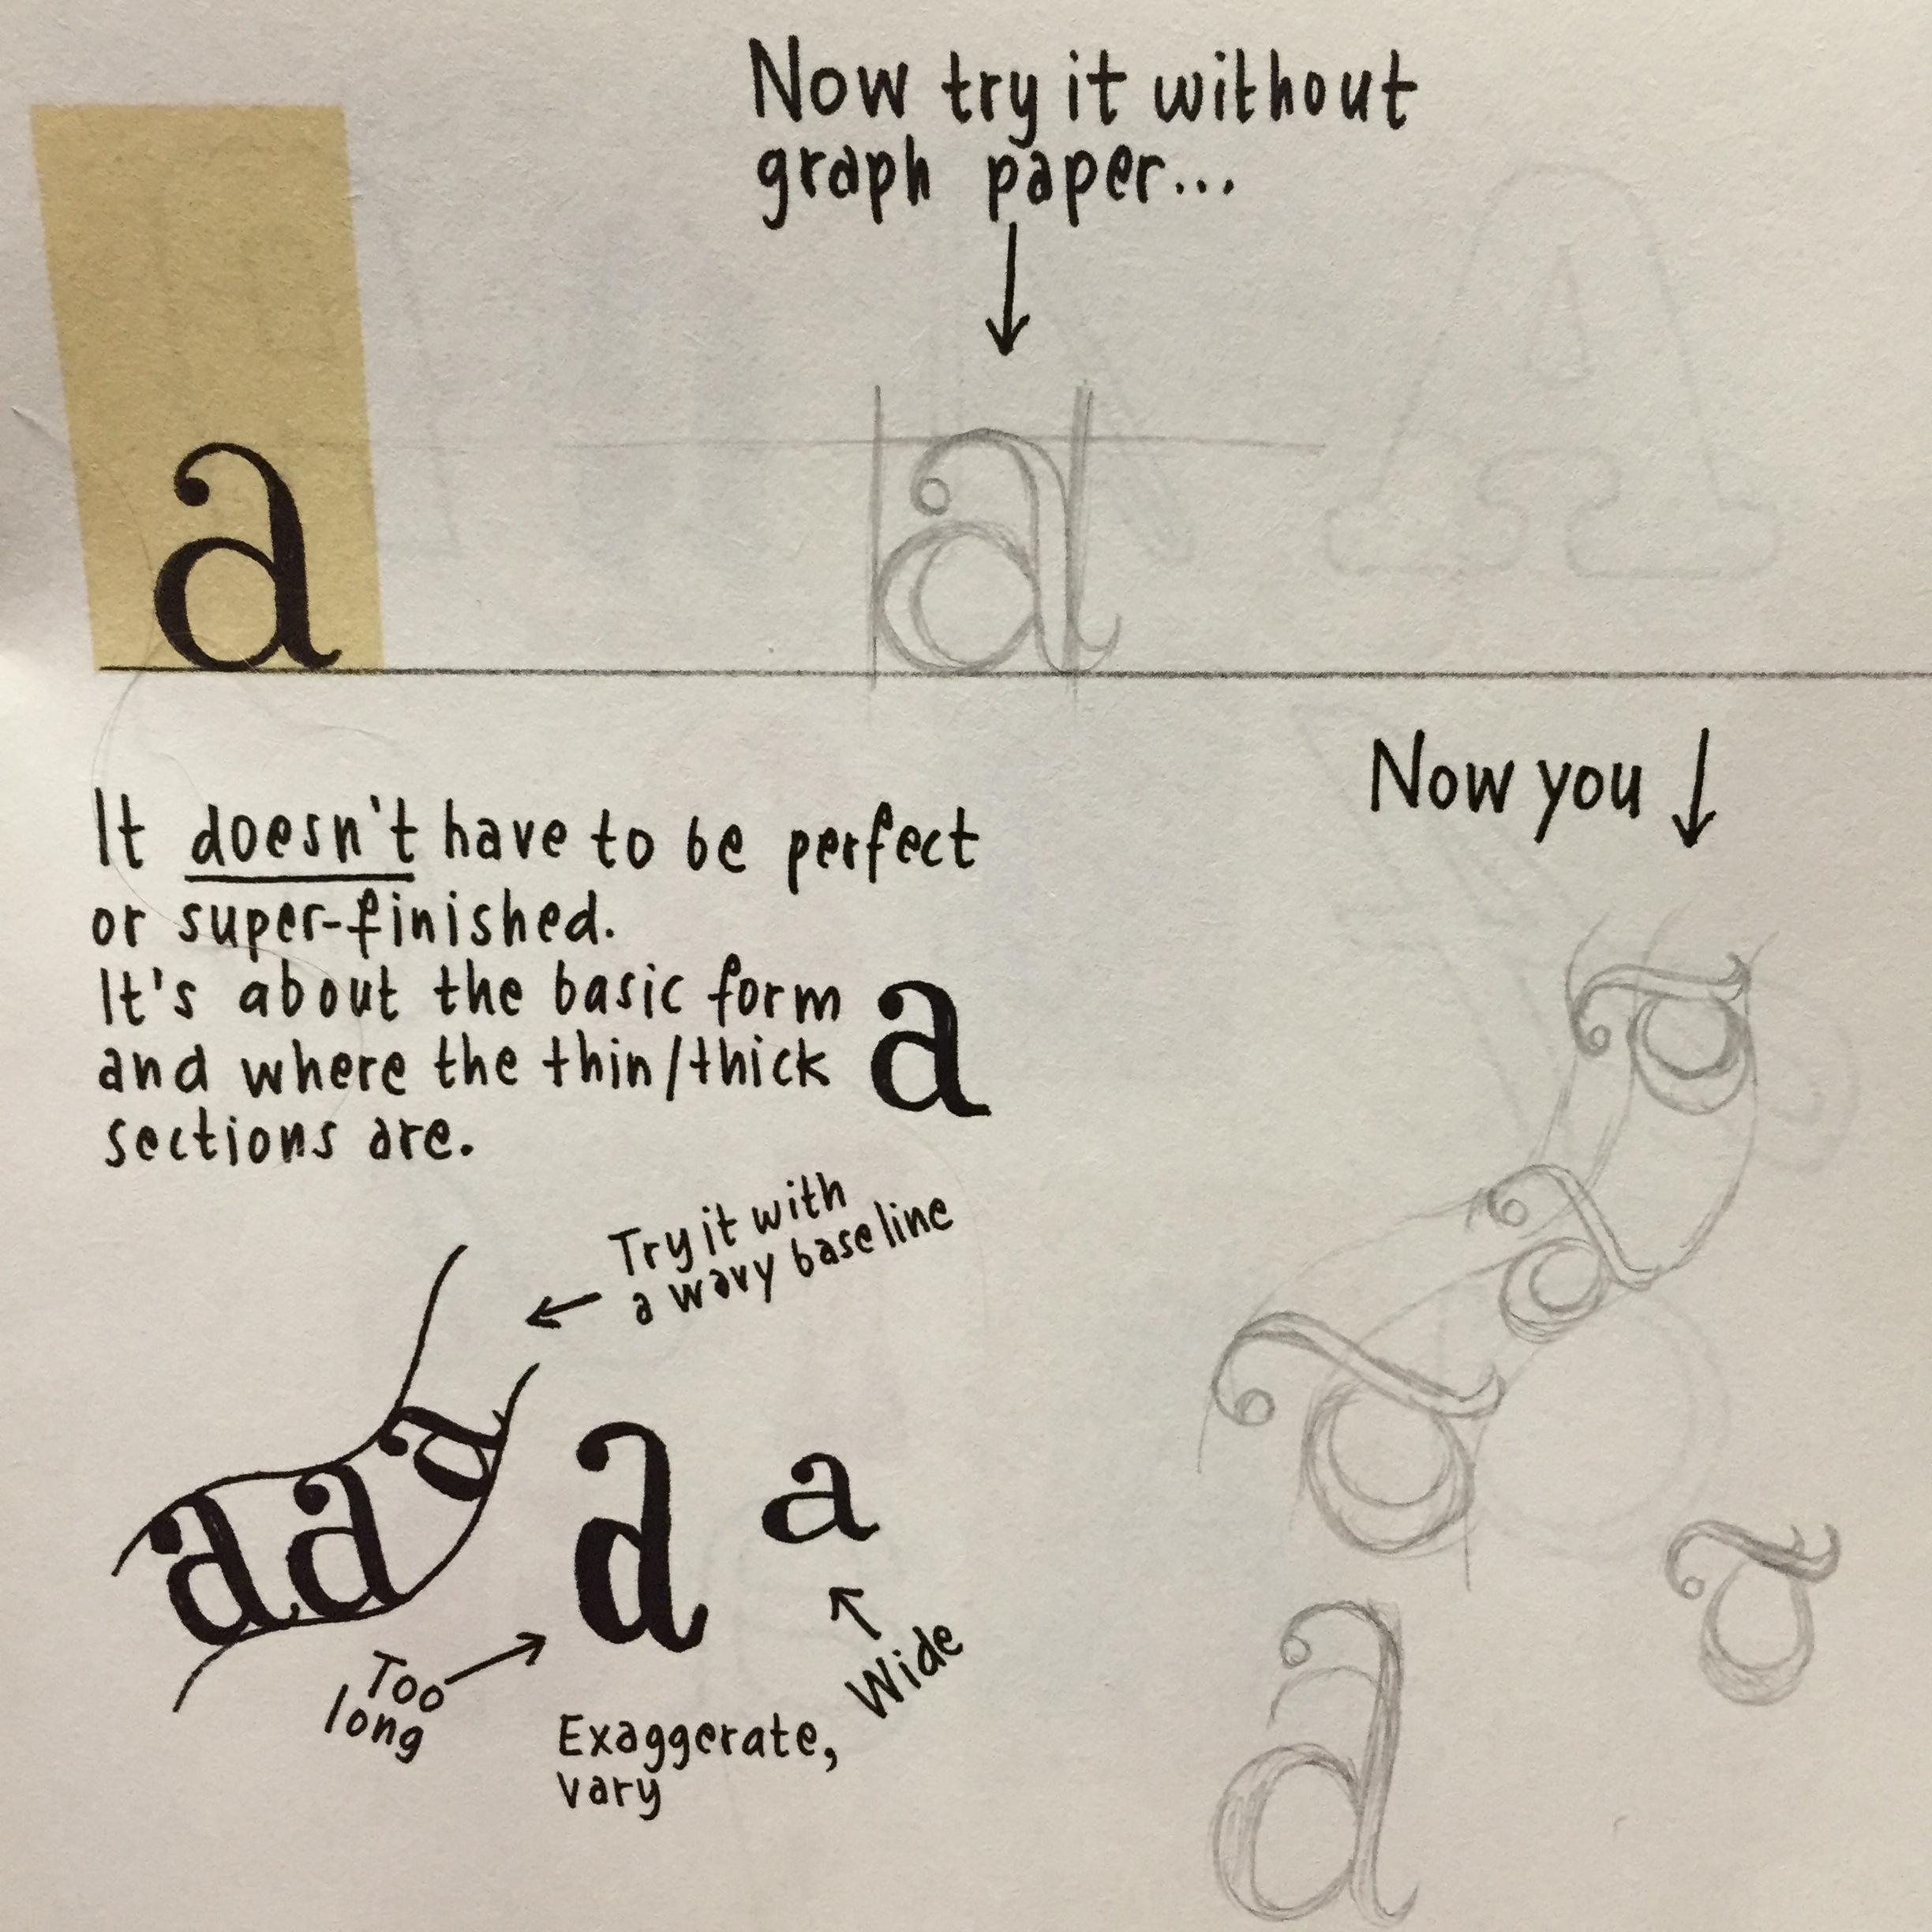 Now try it without
graph paper...
a
a
Now you
It doesn't have to be perfect
or super-finished.
It's about the basic form
and where the thin/thick
sections are.
a
Try it with
a wavy baseline
a a a
a
a
Too
long
Wide
Exaggerate,
vary
a
a
a
a
a